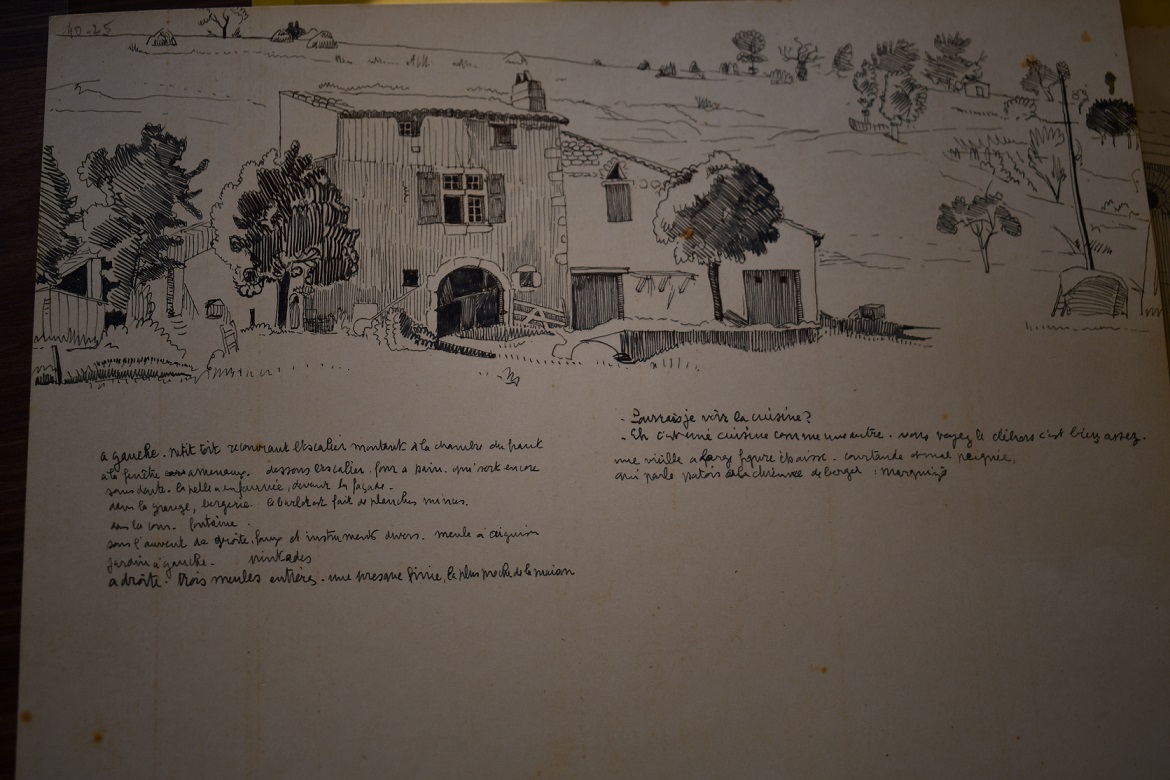 40-25
à gauche. petit toit recouvrant l'escalier montant à la chambre du haut
à la fenêtre anneaux. dessous escalier. four à pain. qui sert encore
sans doute. la pelle a enfournée, devant la façade.
dans la grange, bergerie. le est fait de planches minces.
dans la cour. fontaine.
sous l'auvent de droite, faux et instruments divers. meule à aiguiser
jardin à gauche. pintades
à droite. trois meules entières. une presque finie, la plus proche de la maison
- Pourrais je voir la cuisine?
- Eh c'est une cuisine comme une autre. vous voyez le dehors c'est bien assez.
une vieille a large figure épaisse. courtaude et mal peignée,
qui parle patois à la de berger :